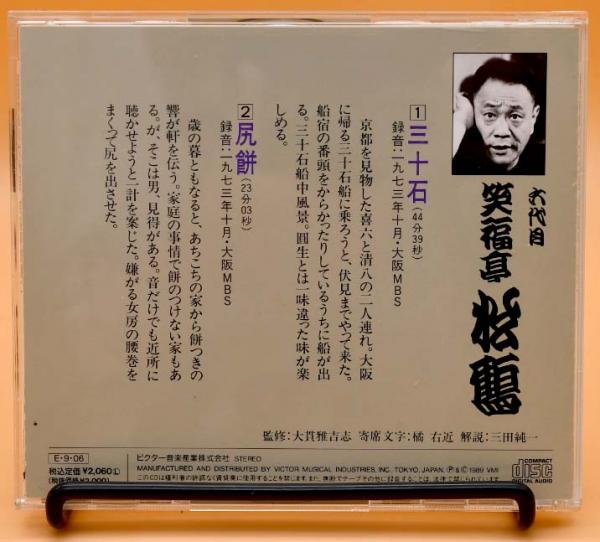 六代目
笑福亭 松鶴
1 三十石(44分39秒)
録音:一九七三年十月・大阪MBS
京都を見物した喜六と清八の二人連れ。大阪
に帰る三十石船に乗ろうと、伏見までやって来た。
船宿の番頭をからかったりしているうちに船が出
る。三十石船中風景。圓生とは一味違った味が楽
しめる。
2 尻餅(23分03秒)
録音:一九七三年十月・大阪MBS
歳の暮ともなると、あちこちの家から餅つきの
響が軒を伝う。家庭の事情で餅のつけない家もあ
る。が、そこは男、見得がある。音だけでも近所に
聴かせようと一計を案じた。嫌がる女房の腰巻を
まくって尻を出させた。
監修:大貫雅吉志 寄席文字:橘 右近 解説:三田純一
E・9・06
税込定価¥2,060Ⓛ
(税抜価格¥2,000)
ビクター音楽産業株式会社 STEREO
MANUFACTURED AND DISTRIBUTED BY VICTOR MUSICAL INDUSTRIES, INC. TOKYO, JAPAN. Ⓟ&Ⓒ 1989 VMI
このCDは権利者の許諾なく賃貸業に使用することを禁じます。また、無断でテープその他に録音することは、法律で禁じられています。
COMPACT
disc
DIGITAL AUDIO